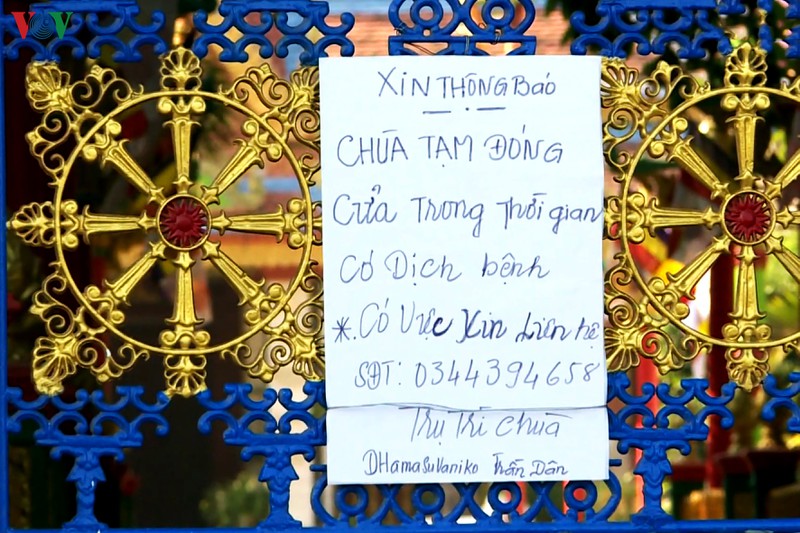 VOV
XIN THÔNG BÁO
CHÙA TẠM ĐÓNG
CỬA TRONG Thời gian
CÓ DỊCH bệnh
*. CÓ VIỆC XIN Liên hệ
SĐT: 0344394658
TRỤ TRÌ CHÙA
DHamaSuVaniko Trần Dân